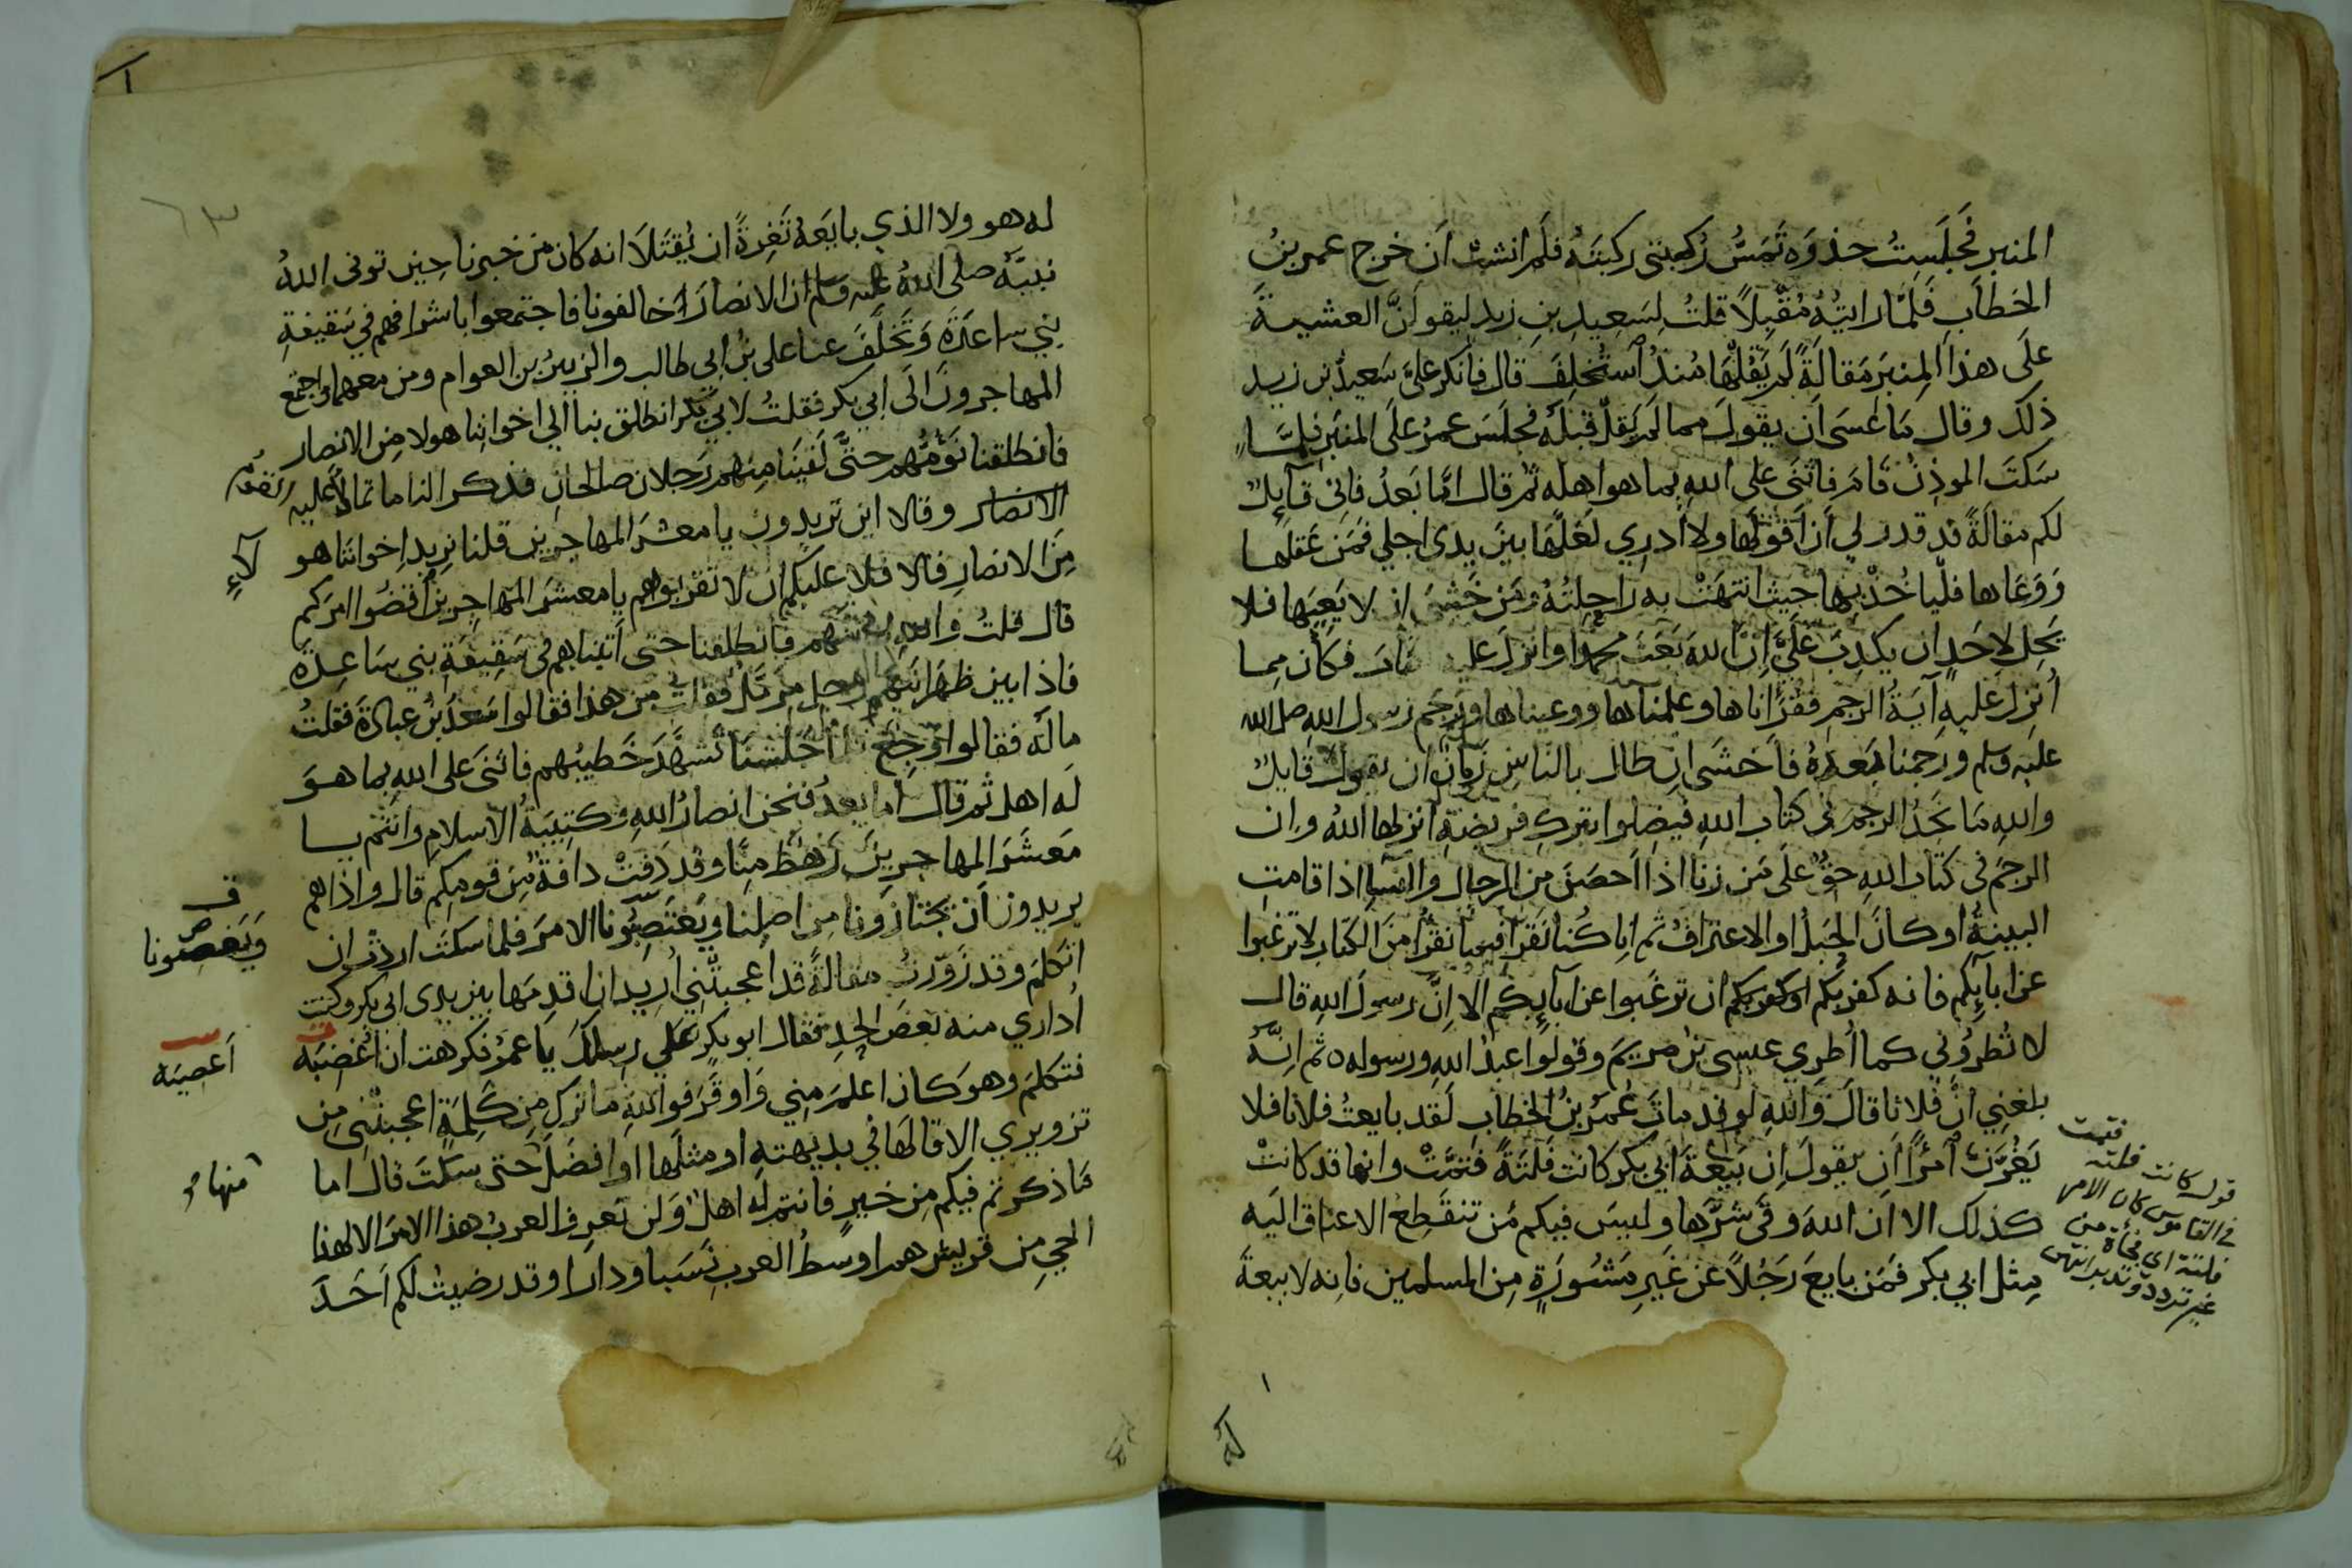 المنبر فَجَلَستُ حذوَه تَمَسُّ رُكبتي ركبَتَهُ فلَم انشَب اَن خرج عمر بنُ
الخطاب فَلمَّا رايتُهُ مُقْبِلاً قلتُ لِسَعِيدِ بنِ زيدٍ ليقولَنَّ العشيةَ
علَى هذا المِنبَر مَقالَةً لَم يَقُلْهَا مُنذُ اسْتُخلِفَ قال فانكر علىَّ سَعيدُ بن زيد
ذلك وقال مَا عَسَى اَن يقولَ مما لَم يَقلْ قبْلَهُ فَجلَسَ عمرُ علَى المنبَرِ فلمَّا
سَكتَ الموذِنُ قَامَ فاثنَى على اللهِ بما هو اهله ثم قال امَّا بَعدُ فاني قآئِلٌ
لكم مقالَةً قد قدر لي اَن اَقولَها ولا اَدرِي لَعَلَّهَا بينَ يدى اجلي فمَن عَقلَها
وَوَعَاها فليَاخُذْ بها حيث انتهَتْ به راحِلتُهُ ومَن خَشىَ ان لا يَعِيَها فلا
يَحِل لاحَدٍ ان يكذِبَ عَلَيَّ اِنَّ اللهَ بَعَثَ محمدًا وانزلَ عليه فكان مِما
اُنزِلَ عليهِ آيَةُ الرجمِ فقَرَاناها وعلمناها ووعيناها ورَجَم رَسول اللهِ صلى الله
عليه وسلم ورجمنا بَعدَهُ فاَخشَى ان طال بالناسِ زَمانٌ ان يقولَ قايلٌ
واللهِ مَا نَجِدُ الرجمَ في كتاب اللهِ فيَضِلوا بترك فريضةٍ انزلها اللهُ وان
الرجمَ في كتاب اللهِ حَقٌ علَى مَن زنا اذا اَحصَنَ من الرجالِ والنسآءِ اذا قامتِ
البينَةُ او كانَ الحبَلُ او الاعترافُ ثم اِنا كُنا نَقرَا فيما نقرُا مِنَ الكتَابِ لا ترغبوا
عن ابآئِكم فانه كفر بكم او كفر بكم ان ترغَبوا عن ابآئِكُم الا اِنَّ رسولَ اللهِ قال
لا تُطرُوني كما اُطرِي عيسى بنُ مريمَ وقولوا عبدُ اللهِ ورسوله ه ثم اِنَّه
بلغنِي انَّ فُلانا قالَ وَاللهِ لو قد ماتَ عُمَرُ بنُ الخطابِ لَقد بايعتُ فلانا فلا
يَغُرَّنَّ امْرًا اَن يقولَ اِن بَيْعَةَ ابي بكر كانت فَلتَةً فتمَّتْ وانها قد كانتْ
كذلك الا ان اللهَ وقَى شرَّها وليسَ فيكم مَن تنقَطِعُ الاعناق اليَه
مِثل ابي بكر فمَن بايعَ رَجُلاً عَن غَيرِ مَشُورَةٍ مِن المسلمين فانه لا بيعةَ
قوله كانت فلتة فتمت
في القاموس كان الامر
فلتة اي فجأة من
غير تردد وتدبر انتهى
له
ا
٦٣
له هو ولا الذي بايَعَهُ تَغِرةً ان يُقتَلَا انه كان من خبرنا حِين توفى اللهُ
نبيَّه صلى اللهُ عليه وسلم ان الانصارَ خالفونا فاجتمعوا باشرافهم في سَقيفةِ
بني ساعدَةَ وَتَخلَّفَ عنا على بنُ ابى طالب والزبيرُ بن العوام ومن معهما واجتمع
المهاجرونَ الَى ابي بكر فقلتُ لابي بكر انطلق بنا الى اخواننا هولا مِن الانصار
فانطلقنا نَوُمُّهم حتَّى لَقيَنَا مِنهم رَجلان صالحان فذكر النا ما تمالأ عليه القوم
الانصار وقالا اين تريدون يا معشَرَ المهاجرين قلنا نريد اخوانَنا هو لآءِ
مِنَ الانصارِ قالا فلا عليكم ان لا تقربوهم يا معشَرَ المهاجِرين اُقضُوا امرَكم
قال قلتُ واللهِ لناتينهم فانطلقنا حتى اَتيناهم في سَقِيفَةِ بني سَاعِدَة
فاذا بين ظَهرَانَيهِم رجل مزمَّل فقلت من هذا فقالوا سَعدُ بنُ عبادَةَ فقلتُ
ما لَه فقالوا وجِع جَلَسْنَا تَشهَّدَ خَطيبُهم فاثنَى على اللهِ بما هوَ
لَه اهل ثم قال اما بعدُ فنحن انصارُ اللهِ وكتِيبَةُ الاسلامِ وانتم يا
مَعشَرَ المهاجرِينَ رَهطٌ مِنَّا وقد دَفتْ دافَةٌ مِن قومِكم قال واذا هم
يريدون اَن يختازَونا مِن اصلِنا ويَغتَصِبُونا الامرَ فلما سكتَ اردْتُ ان
ويَغصبونا
اتكلمَ وقد زَوَّرتُ مقالَةً قد اعجبتْني اُريد ان اقدمَها بين يدى ابي بكر وكنت
اُدارِي منه بعضَ الحدِ فقال ابو بكرٍ عَلي رِسلِكَ يا عمرُ فكرهت ان اُغضِبَه
اَعصِيَه
فتكلمَ وهوَ كانَ اعلمَ مِني وَاوقَرَ فواللهِ ما تركَ مِن كَلِمَةٍ اعجبتْني مِن
تزويري الا قالهَا في بديهتهِ او مثلَها او افضَلَ حتى سَكتَ قال اما
منها
مَا ذكرتم فيكم مِن خيرٍ فانتم لَه اهلٌ وَلن تَعرِف العربُ هذا الامرَ الا لهذا
الحي مِن قريش هم اوسَطُ العربِ نَسَبا ودارا وقد رضيتُ لكم اَحَدَ